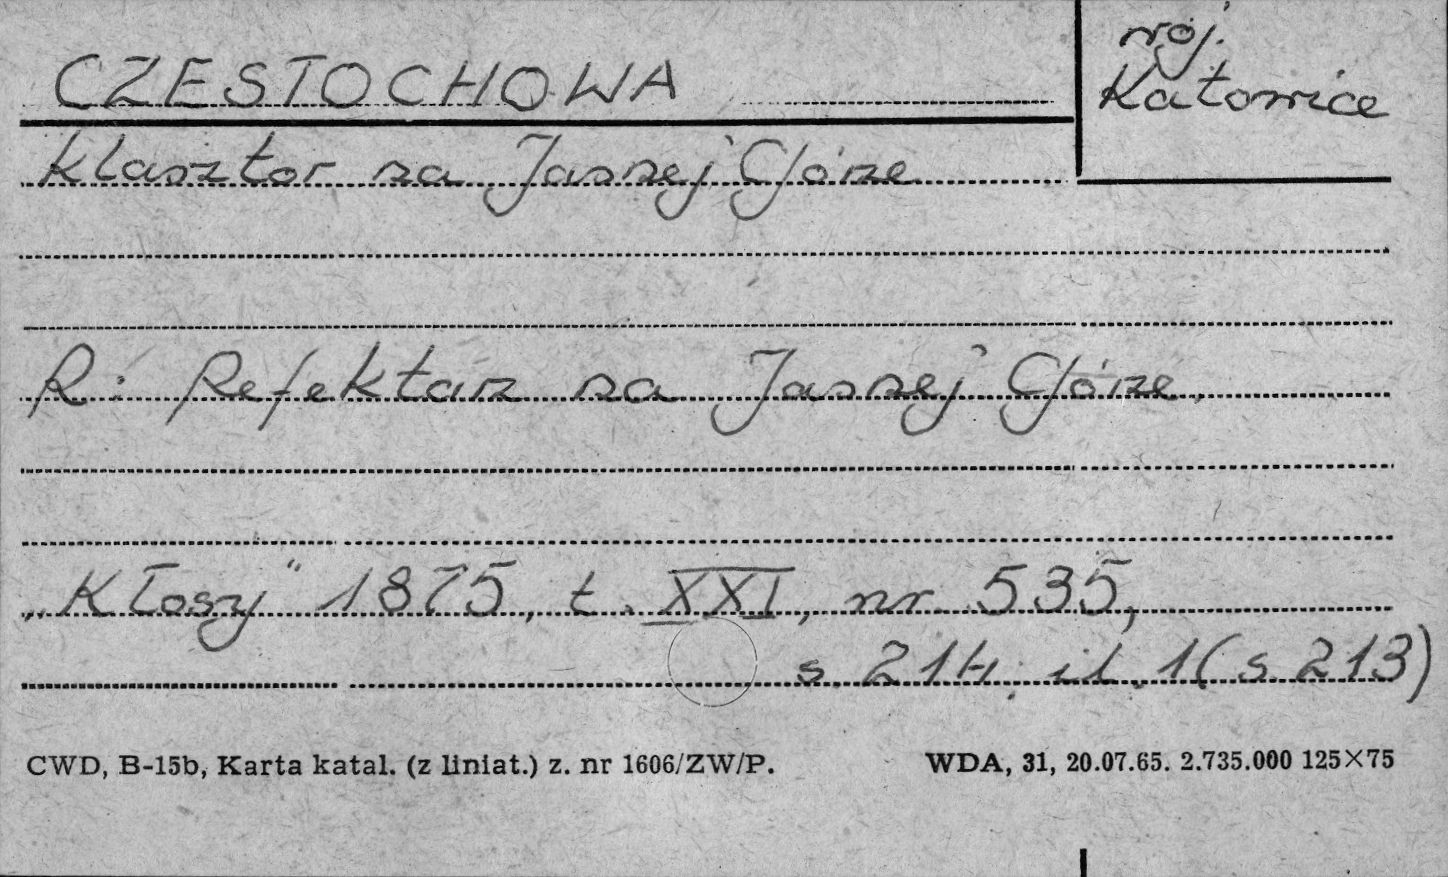 CZESTOCHOWA
woj.
Katowice
Klasztor na Jasnej Górze
R: Refektarz na Jasnej Górze.
„Kłosy" 1875, t. XXI, nr 535,
s. 214; il. 1 (s. 213)
CWD, B-15b, Karta katal. (z liniat.) z. nr 1606/ZW/P. WDA, 31, 20.07.65. 2.735.000 125×75